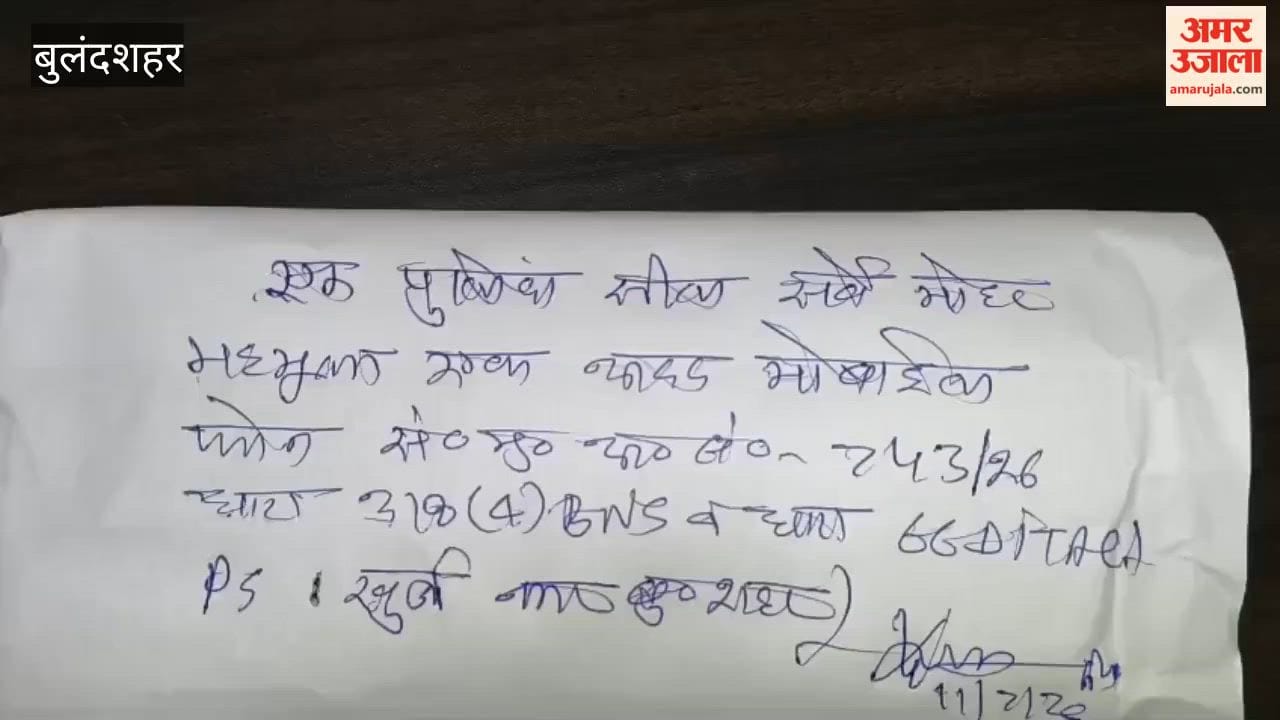 बुलंदशहर
अमर
उजाला
amarujala.com
एक पुलिंदा सील सर्वे मोहर
मय नमूना एक अदद मोबाईल
फोन सं० मु० अ० सं०- 243/26
धारा 318(4) BNS व धारा 66D IT Act
PS खुर्जा नगर बु० शहर
11/2/26